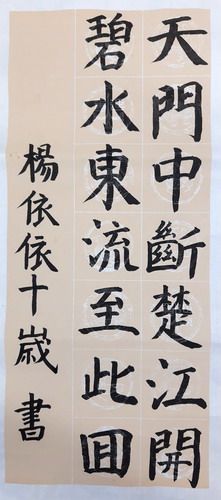 天門中斷楚江開
碧水東流至此回
楊依依十歲書